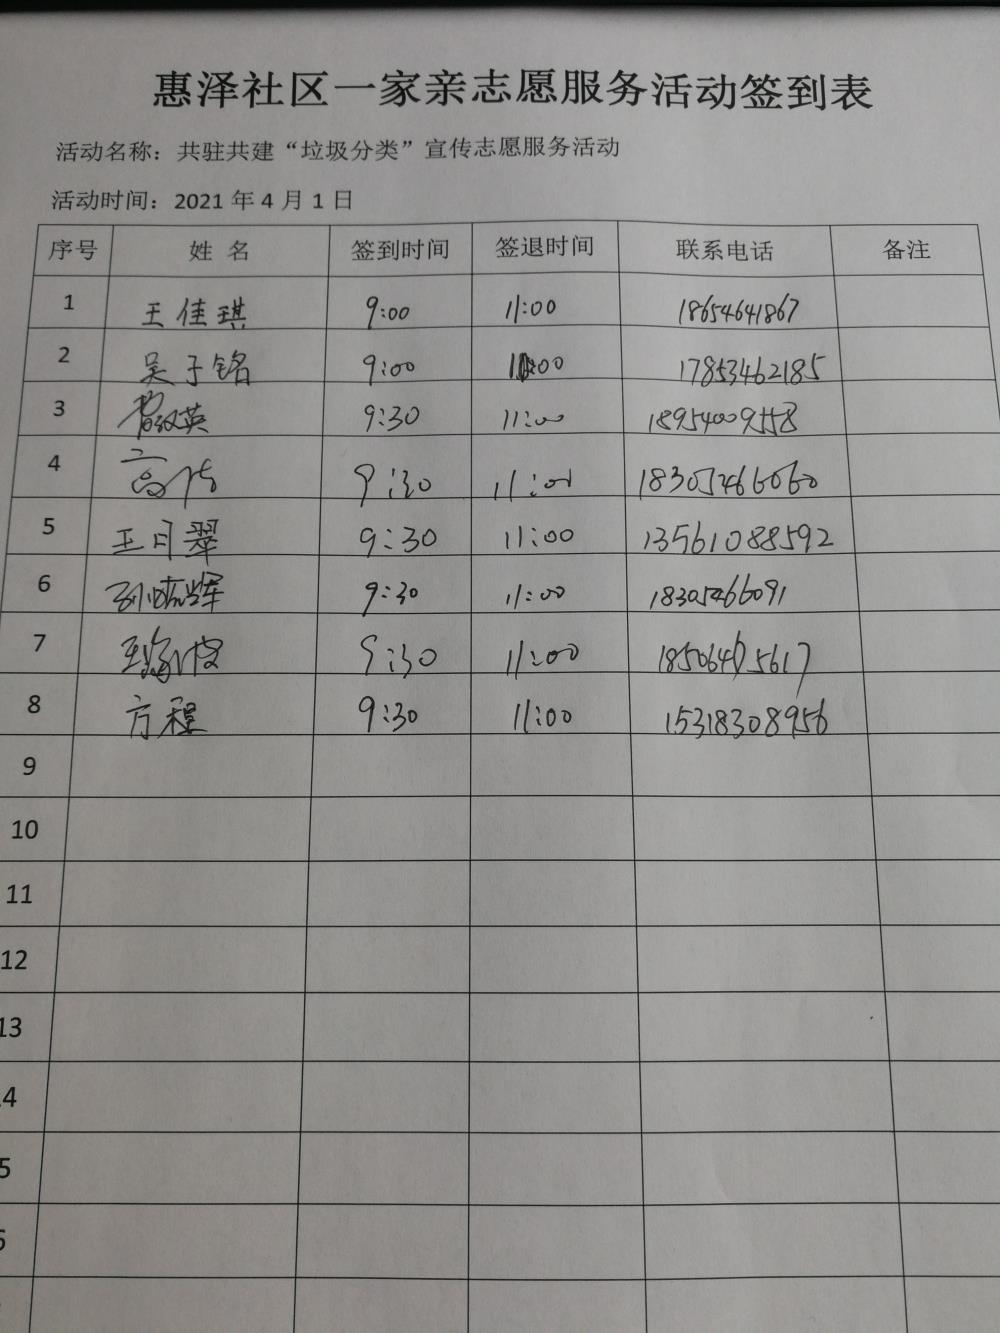 惠泽社区一家亲志愿服务活动签到表
活动名称：共驻共建“垃圾分类”宣传志愿服务活动
活动时间：2021 年 4 月 1 日
序号 姓 名 签到时间 签退时间 联系电话 备注
1 王佳琪 9:00 11:00 18654641867
2 吴子铭 9:00 11:00 17853462185
3 9:30 11:00 18954009558
4 9:30 11:00 18305466060
5 王月翠 9:30 11:00 13561088592
6 9:30 11:00 18305466091
7 9:30 11:00
8 方程 9:30 11:00 15318308956
9
10
11
12
13